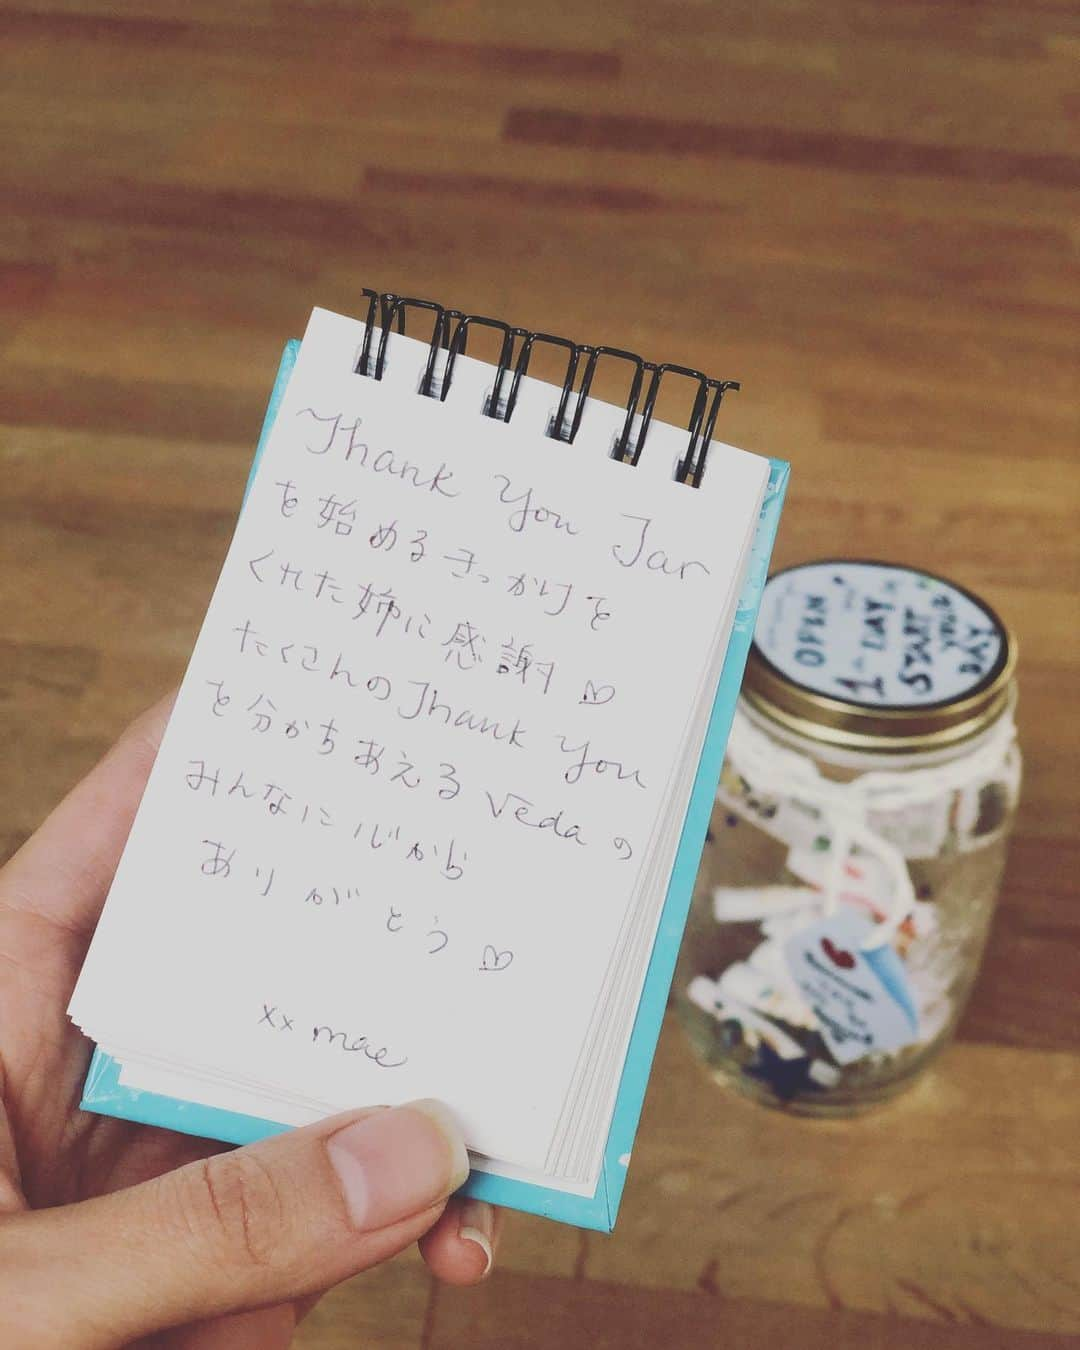 Thank You Jar
を始めるきっかけを
くれた姉に感謝♡
たくさんのThank You
を分かちあえるVedaの
みんなに心から
ありがとう♡
xx mae
OPEN
1 DAY
START
YOUR
DAY